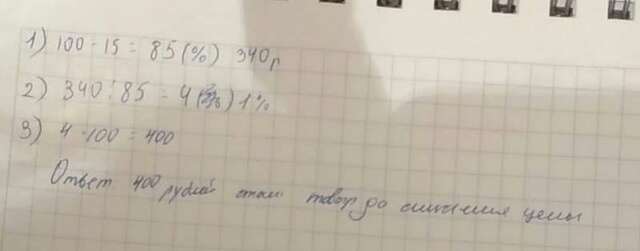 1) 100 - 15 = 85 (%) 340р
2) 340 : 85 = 4 1%
3) 4 · 100 = 400
Ответ 400 рублей стоил товар до снижения цены